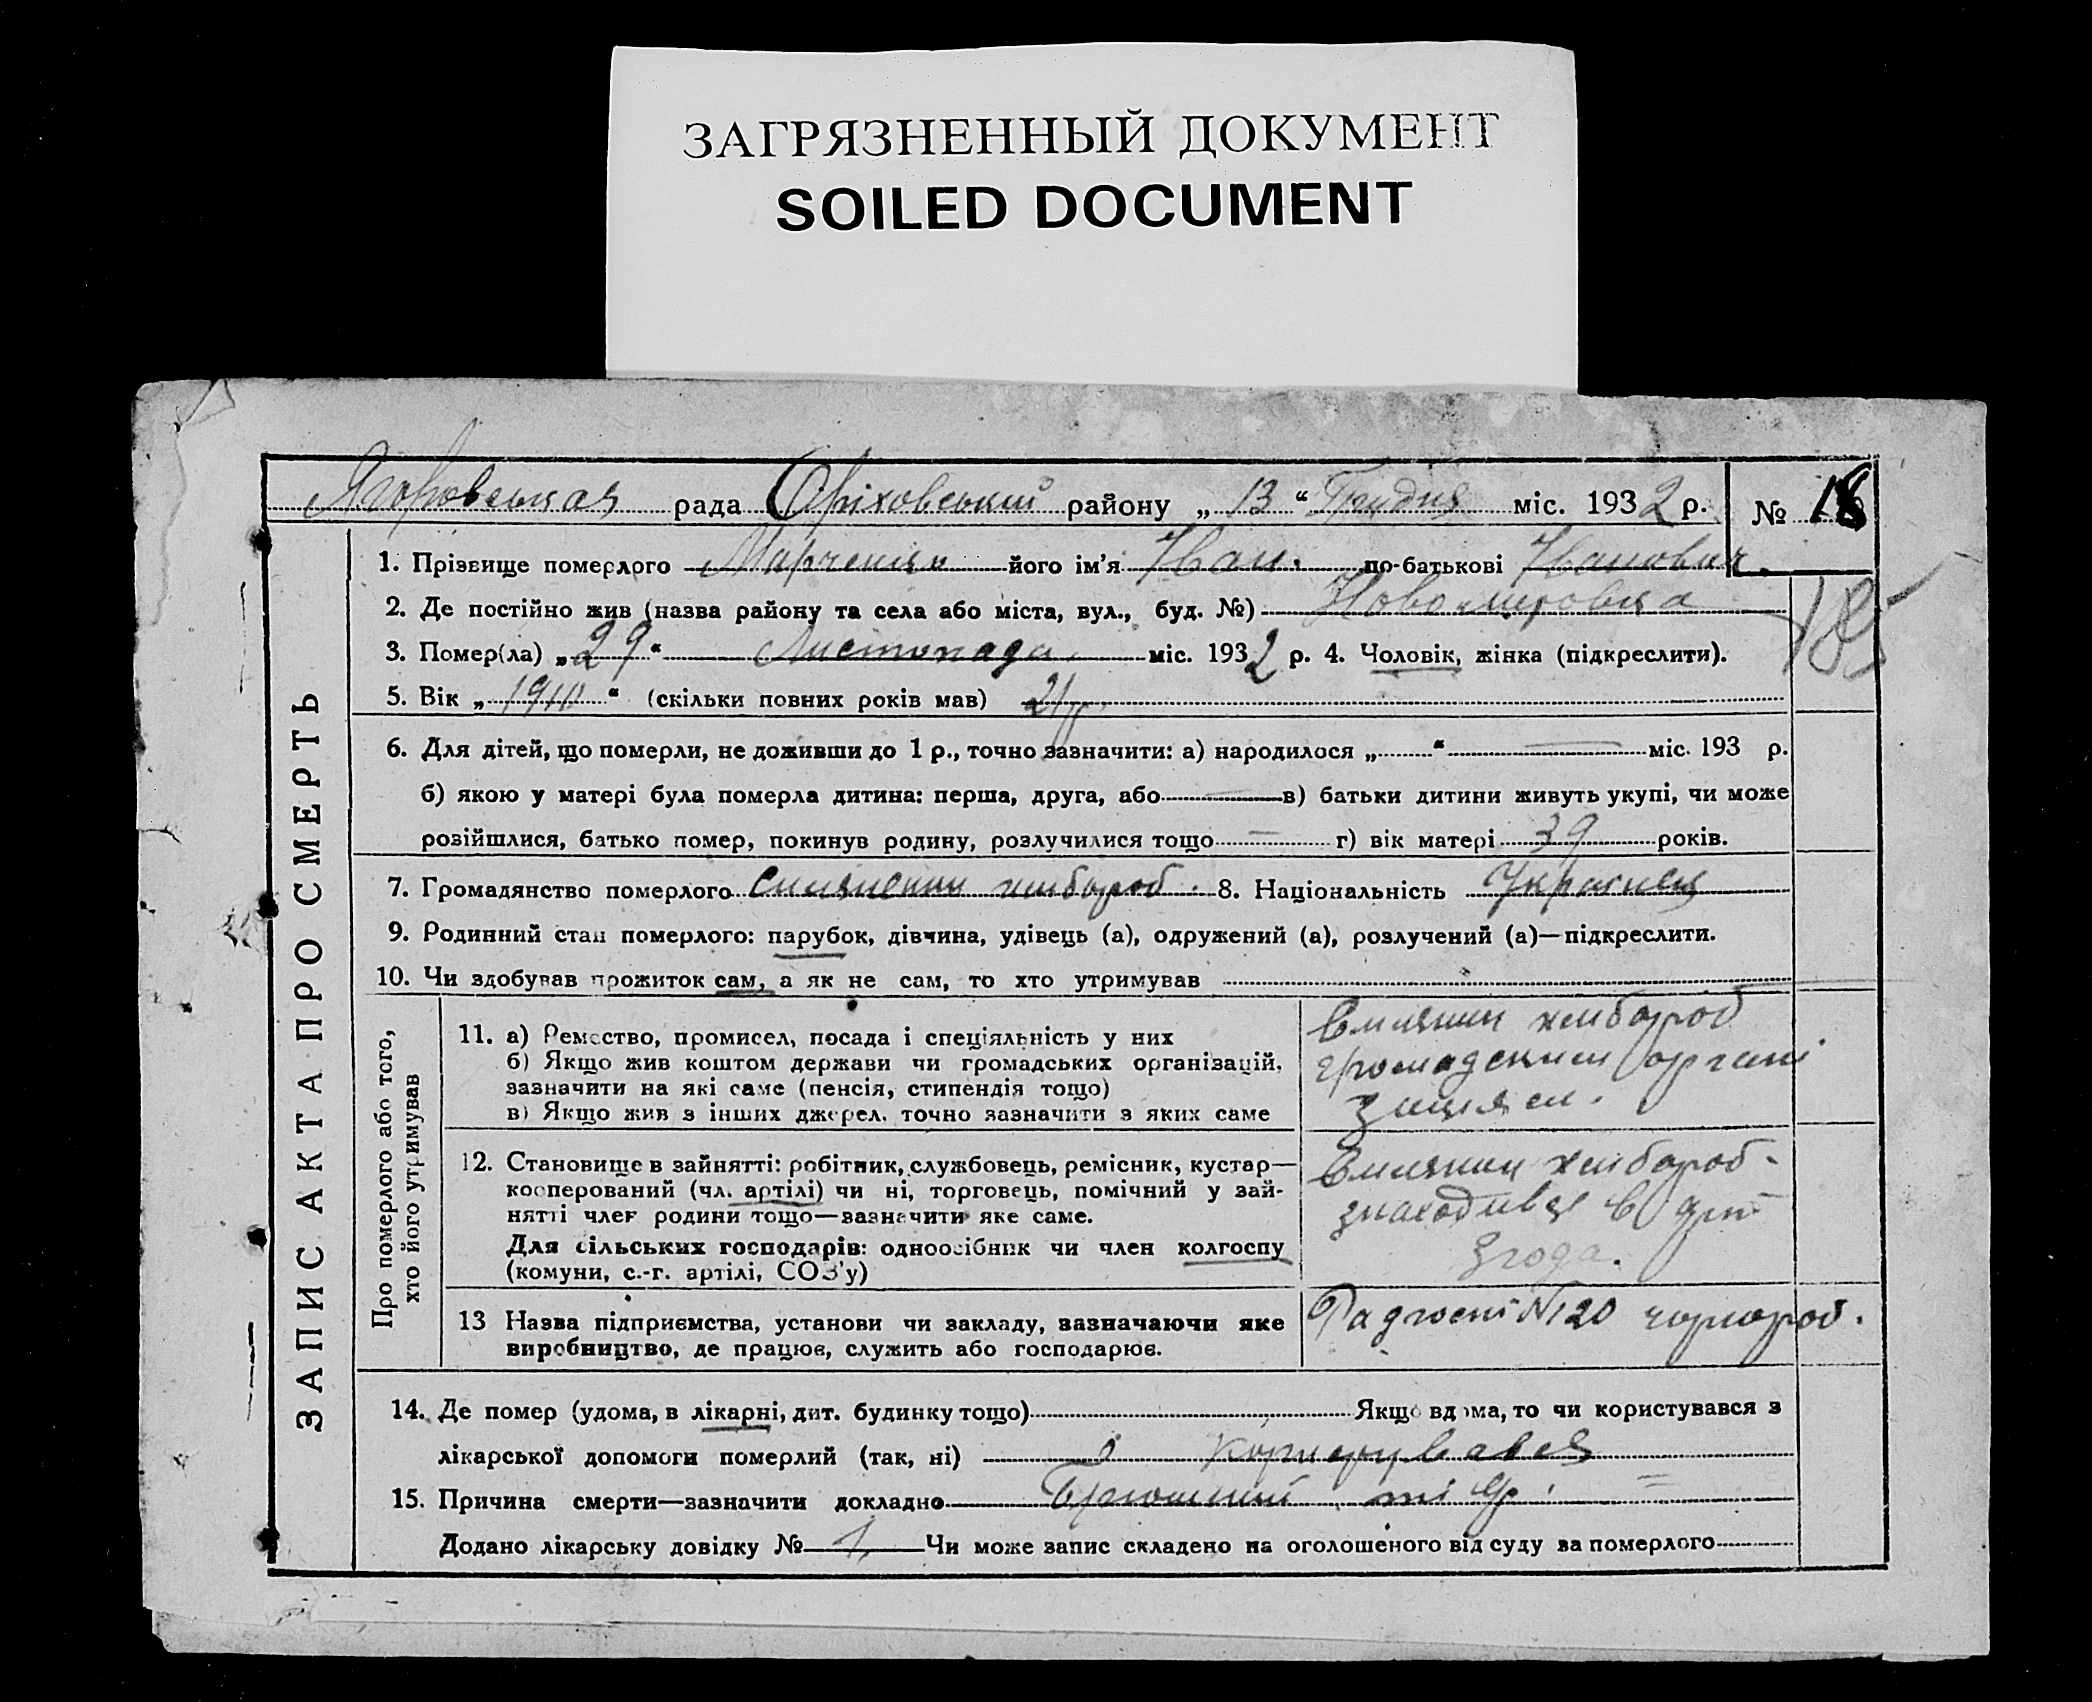 ЗАГРЯЗНЕННЫЙ ДОКУМЕНТ
SOILED DOCUMENT
рада Оріховський району „ 13 “ Грудня міс. 1932 р. № 18
1. Прізвище померлого Марченко його ім'я Иван. по-батькові Иванович.
2. Де постійно жив (назва району та села або міста, вул., буд. №)
185
3. Помер(ла) „ 29 “ Листопада міс. 1932 р. 4. Чоловік, жінка (підкреслити).
5. Вік „ “ (скільки повних років мав) 21
6. Для дітей, що померли, не доживши до 1 р., точно зазначити: а) народилося „ “ — міс. 193 р.
б) якою у матері була померла дитина: перша, друга, або — в) батьки дитини живуть укупі, чи може
розійшлися, батько помер, покинув родину, розлучилися тощо — г) вік матері 39 років.
7. Громадянство померлого хлібороб. 8. Національність Українец
9. Родинний стан померлого: парубок, дівчина, удівець (а), одружений (а), розлучений (а)—підкреслити.
10. Чи здобував прожиток сам, а як не сам, то хто утримував
ЗАПИС АКТА ПРО СМЕРТЬ
Про померлого або того,
хто його утримував
11. а) Ремество, промисел, посада і спеціяльність у них
б) Якщо жив коштом держави чи громадських організацій,
зазначити на які саме (пенсія, стипендія тощо)
в) Якщо жив з інших джерел, точно зазначити з яких саме
хлібороб
12. Становище в зайнятті: робітник, службовець, ремісник, кустар—
кооперований (чл. артілі) чи ні, торговець, помічний у зай-
нятті член родини тощо—зазначити яке саме.
Для сільських господарів: одноосібник чи член колгоспу
(комуни, с.-г. артілі, СОЗ'у)
хлібороб-
знаходився в
13 Назва підприємства, установи чи закладу, зазначаючи яке
виробництво, де працює, служить або господарює.
Радгосп №20 чорнороб.
14. Де помер (удома, в лікарні, дит. будинку тощо) Якщо вдома, то чи користувався з
лікарської допомоги померлий (так, ні)
15. Причина смерти—зазначити докладно Брюшний тіф. =
Додано лікарську довідку № 1, Чи може запис складено на оголошеного від суду за померлого